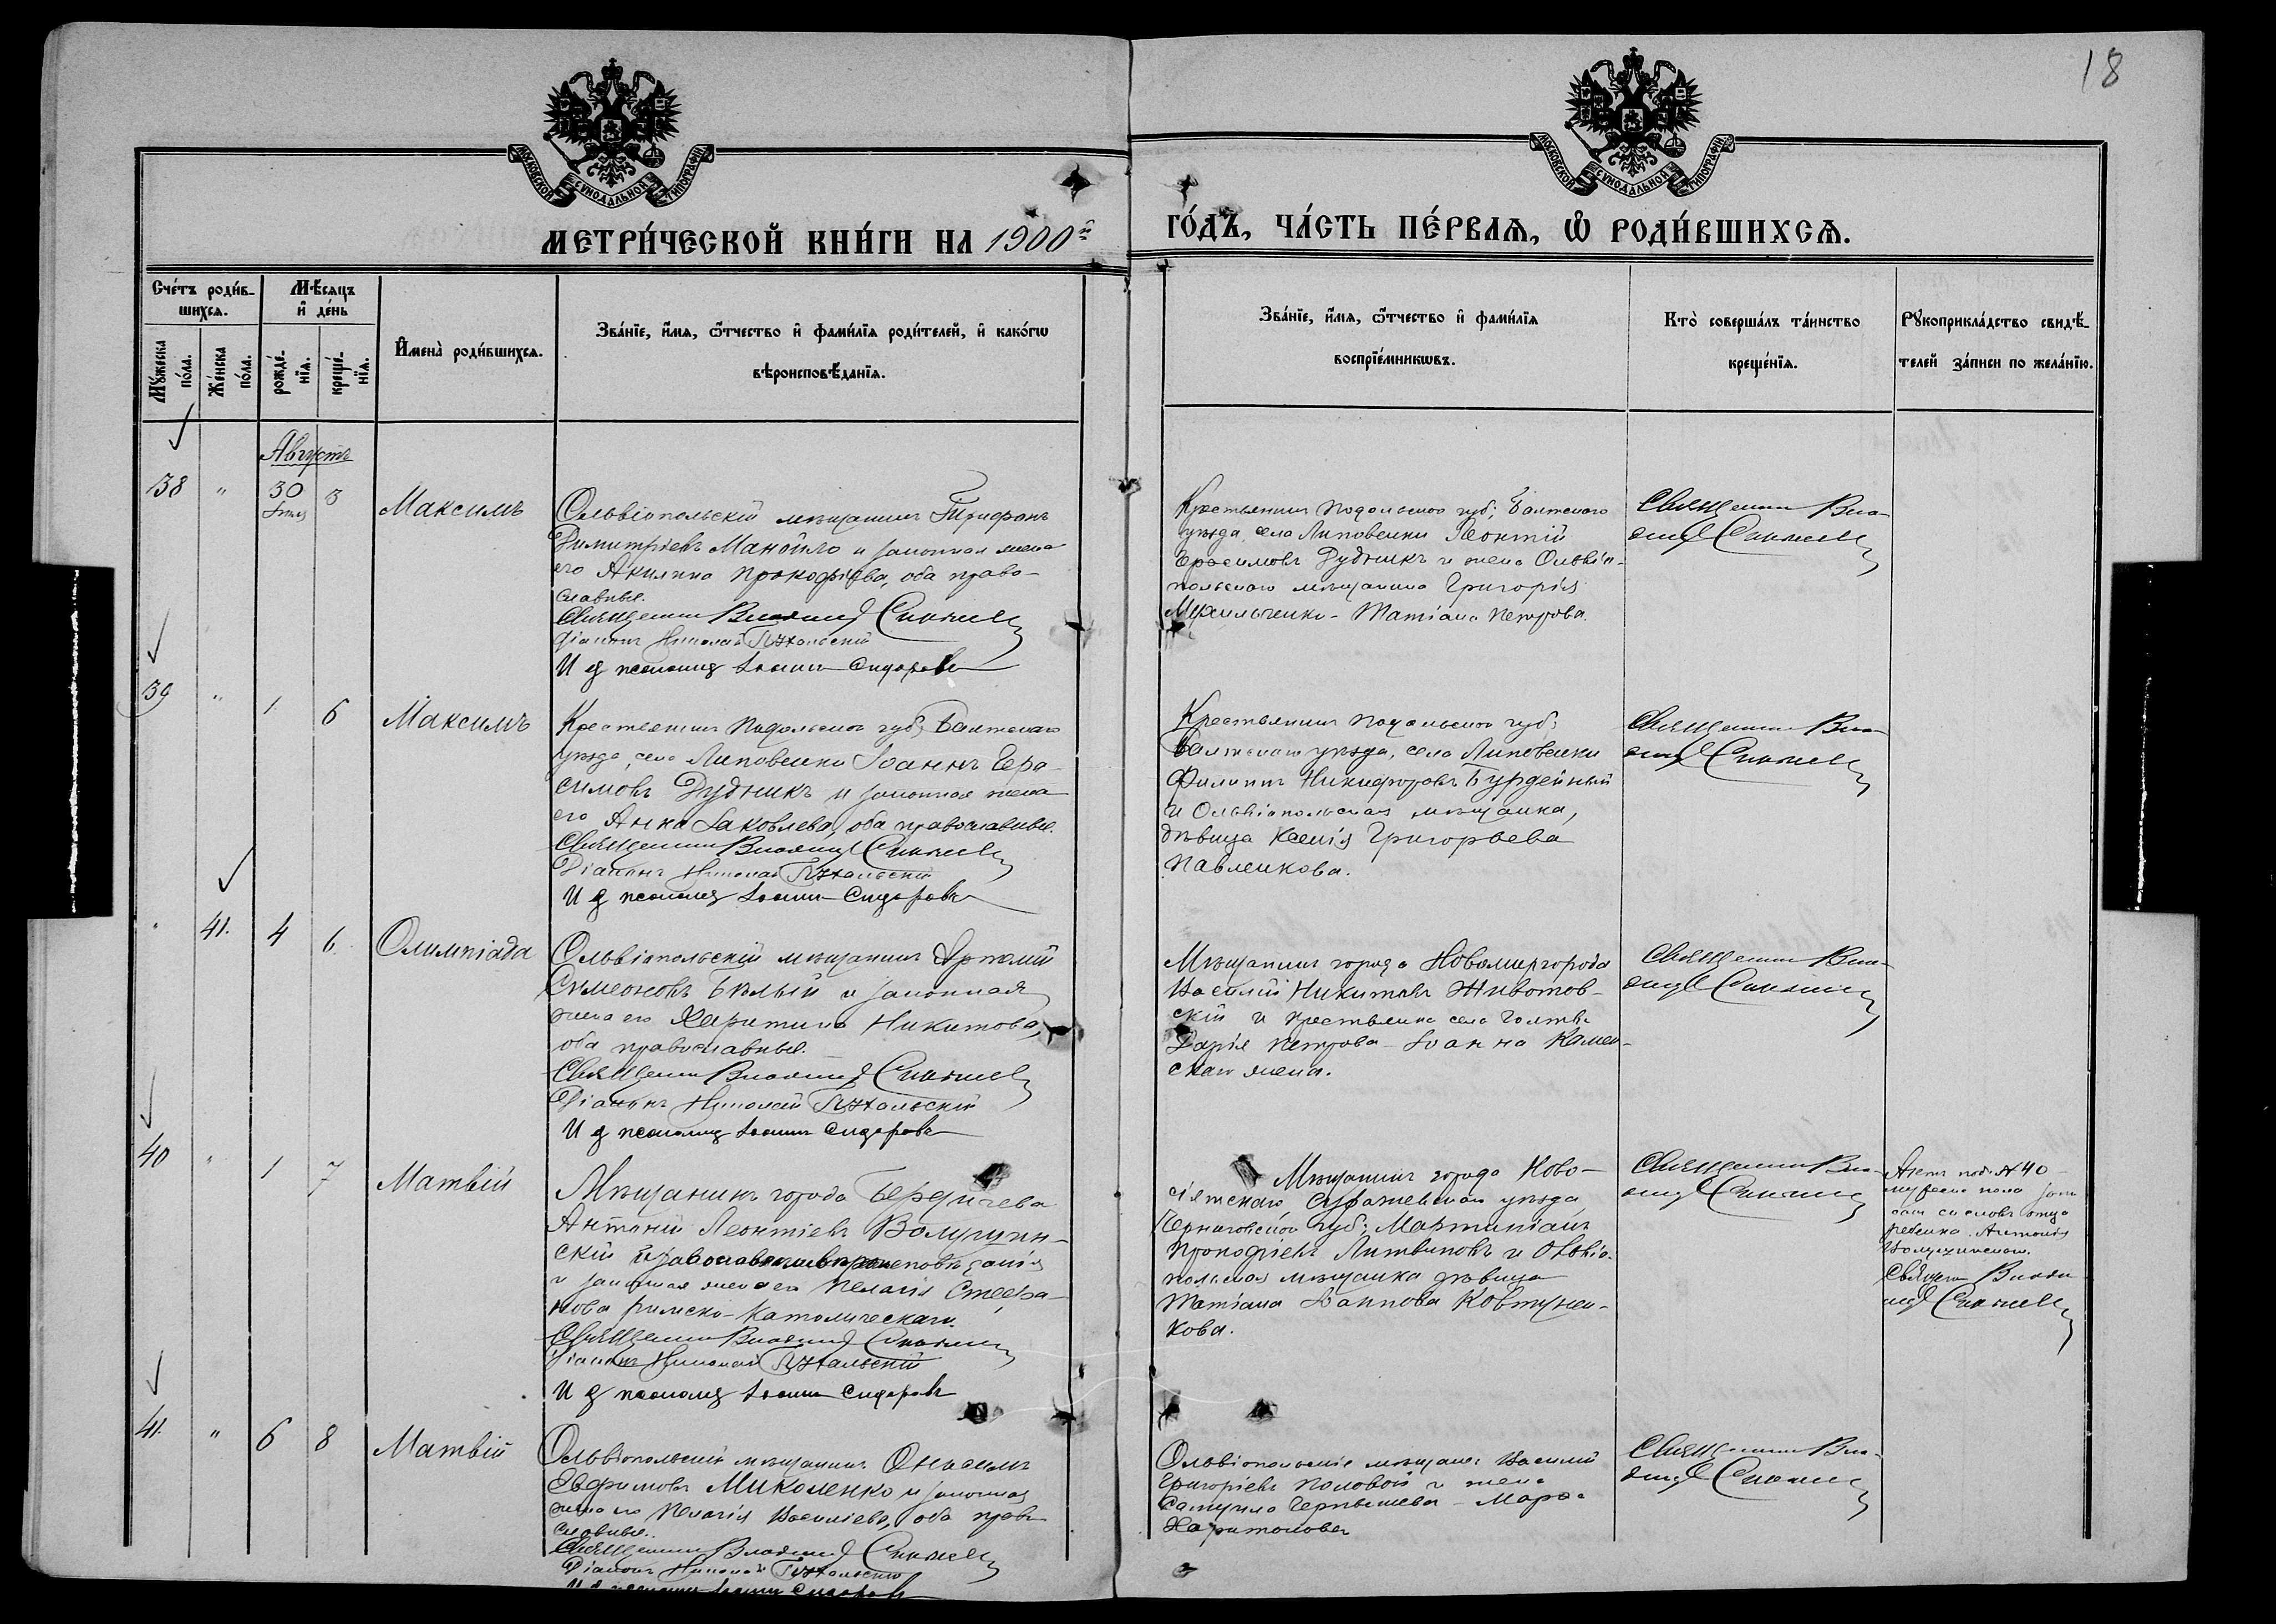 18
МОСКОВСКОЙ СѴНОДАЛЬНОЙ ТИПОГРАФІИ
МОСКОВСКОЙ СѴНОДАЛЬНОЙ ТИПОГРАФІИ
МЕТРИ́ЧЕСКОЙ КНИ́ГИ НА 1900й
ГО́ДЪ, ЧА́СТЬ ПЕ́РВАѦ, Ѡ РОДИ́ВШИХСѦ.
Сче́тъ роди́в-
шихсѧ.
Му́жеска по́ла.
Же́нска по́ла.
Мѣ́сяцъ
и҆ де́нь
рожде́-
нїѧ.
креще́-
нїѧ.
И҆мена̀ роди́вшихсѧ.
Зва́нїе, и҆́мѧ, ѻ҆́тчество и҆ фами́лїѧ роди́телей, и҆ како́гѡ
вѣроисповѣ́данїѧ.
Зва́нїе, и҆́мѧ, ѻ҆́тчество и҆ фами́лїѧ
воспрїе́мникѡвъ.
Кто̀ соверша́лъ та́инство
креще́нїѧ.
Рꙋкоприкла́дство свидѣ́-
телей за́писи по жела́нїю.
Августъ
38 " 30 3 Максимъ
Ольвіопольскій мѣщанинъ Трифонъ
Димитріевъ Манойло и законная жена
его Акилина Прокофіева, оба право-
славные.
Священникъ Владимір
Діаконъ Николай
И д псаломщ Іоаннъ Сидоровъ
Крестьянинъ Подольской губ; Балтскаго
уѣзда, села Липовенки Леонтій
Герасимовъ Дудникъ и жена Ольвіо-
польскаго мѣщанина Григорія
Татіана Петрова.
Священникъ Вла-
димір
39 " 1 6 Максимъ
Крестьянинъ Подольской губ; Балтскаго
уѣзда, села Липовенки Іоаннъ Гера-
симовъ Дудникъ и законная жена
его Анна Іаковлева, оба православные.
Священникъ Владимір
Діаконъ Николай
И д псаломщ Іоаннъ Сидоровъ
Крестьянинъ Подольской губ;
Балтскаго уѣзда, села Липовенки
Филиппъ Никифоровъ Бурдейный
и Ольвіопольская мѣщанка,
дѣвица Ксенія Григорьева
Павленкова.
Священникъ Вла-
димір
" 41. 4 6 Олимпіада
Ольвіопольскій мѣщанинъ Артемій
Симеоновъ Бѣлый и законная
жена его Харитина Никитова,
оба православные.
Священникъ Владимір
Діаконъ Николай
И д псаломщ Іоаннъ Сидоровъ
Мѣщанинъ города Новомиргорода
Василій Никитовъ Животов-
скій и крестьянка села Голты
Дарія Петрова - Іоанна Камен-
скаго жена.
Священникъ Вла-
димір
40 " 1 7 Матвій
Мѣщанинъ города Бердичева
Антоній Леонтіевъ
скій православнаго вѣроисповѣданія
и законная жена его Пелагія Стефа-
нова римско-католическаго.
Священникъ Владимір
Діаконъ Николай
И д псаломщ Іоаннъ Сидоровъ
Мѣщанинъ города Ново-
Суражскаго уѣзда
Черниговской губ; Мартиніанъ
Прокофіевъ Литвиновъ и Ольвіо-
польская мѣщанка дѣвица
Татіана Іоаннова Ковтунен-
кова.
Священникъ Вла-
димір
Актъ под № 40
мужеска пола
со словъ отца
ребенка Антонія
Священникъ Влади-
мір
41. " 6 8 Матвій
Ольвіопольскій мѣщанинъ Онисимъ
Евфимовъ Миколенко и законная
жена его Пелагія Василіева, оба право-
славные.
Священникъ Владимір
Діаконъ Николай
И д псаломщ Іоаннъ Сидоровъ
Ольвіопольскіе мѣщане: Василій
Григоріевъ Половой и жена
Самуила Чернышева - Марѳа
Харитонова
Священникъ Вла-
димір